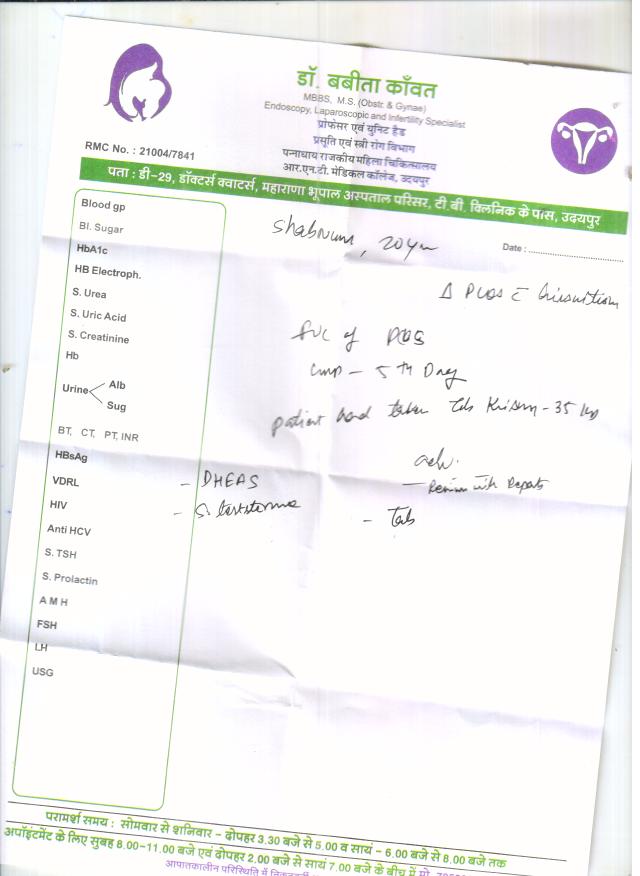 डॉ. बबीता काँवत
MBBS, M.S. (Obstr. & Gynae)
Endoscopy, Laparoscopic and Infertility Specialist
प्रोफेसर एवं युनिट हैड
प्रसूति एवं स्त्री रोग विभाग
पन्नाधाय राजकीय महिला चिकित्सालय
आर.एन.टी. मेडिकल कॉलेज, उदयपुर
RMC No. : 21004/7841
पता : डी-29, डॉक्टर्स क्वाटर्स, महाराणा भूपाल अस्पताल परिसर, टी.बी. क्लिनिक के पास, उदयपुर
Shabnum, 20yr
Date :
Δ PCOS c̄ hirsuitism
Blood gp
Bl. Sugar
HbA1c
HB Electroph.
S. Urea
S. Uric Acid
S. Creatinine
Hb
Urine Alb
Sug
BT, CT, PT, INR
HBsAg
VDRL
HIV
Anti HCV
S. TSH
S. Prolactin
A M H
FSH
LH
USG
of PCOS
LMP - 5th Day
patient had taken Tab - 35
adv.
- Review with Reports
- DHEAS
- S. testosterone
- Tab
परामर्श समय : सोमवार से शनिवार - दोपहर 3.30 बजे से 5.00 व सायं - 6.00 बजे से 8.00 बजे तक
अपॉइंटमेंट के लिए सुबह 8.00-11.00 बजे एवं दोपहर 2.00 बजे से सायं 7.00 बजे के बीच में मो.
आपातकालीन परिस्थिति में